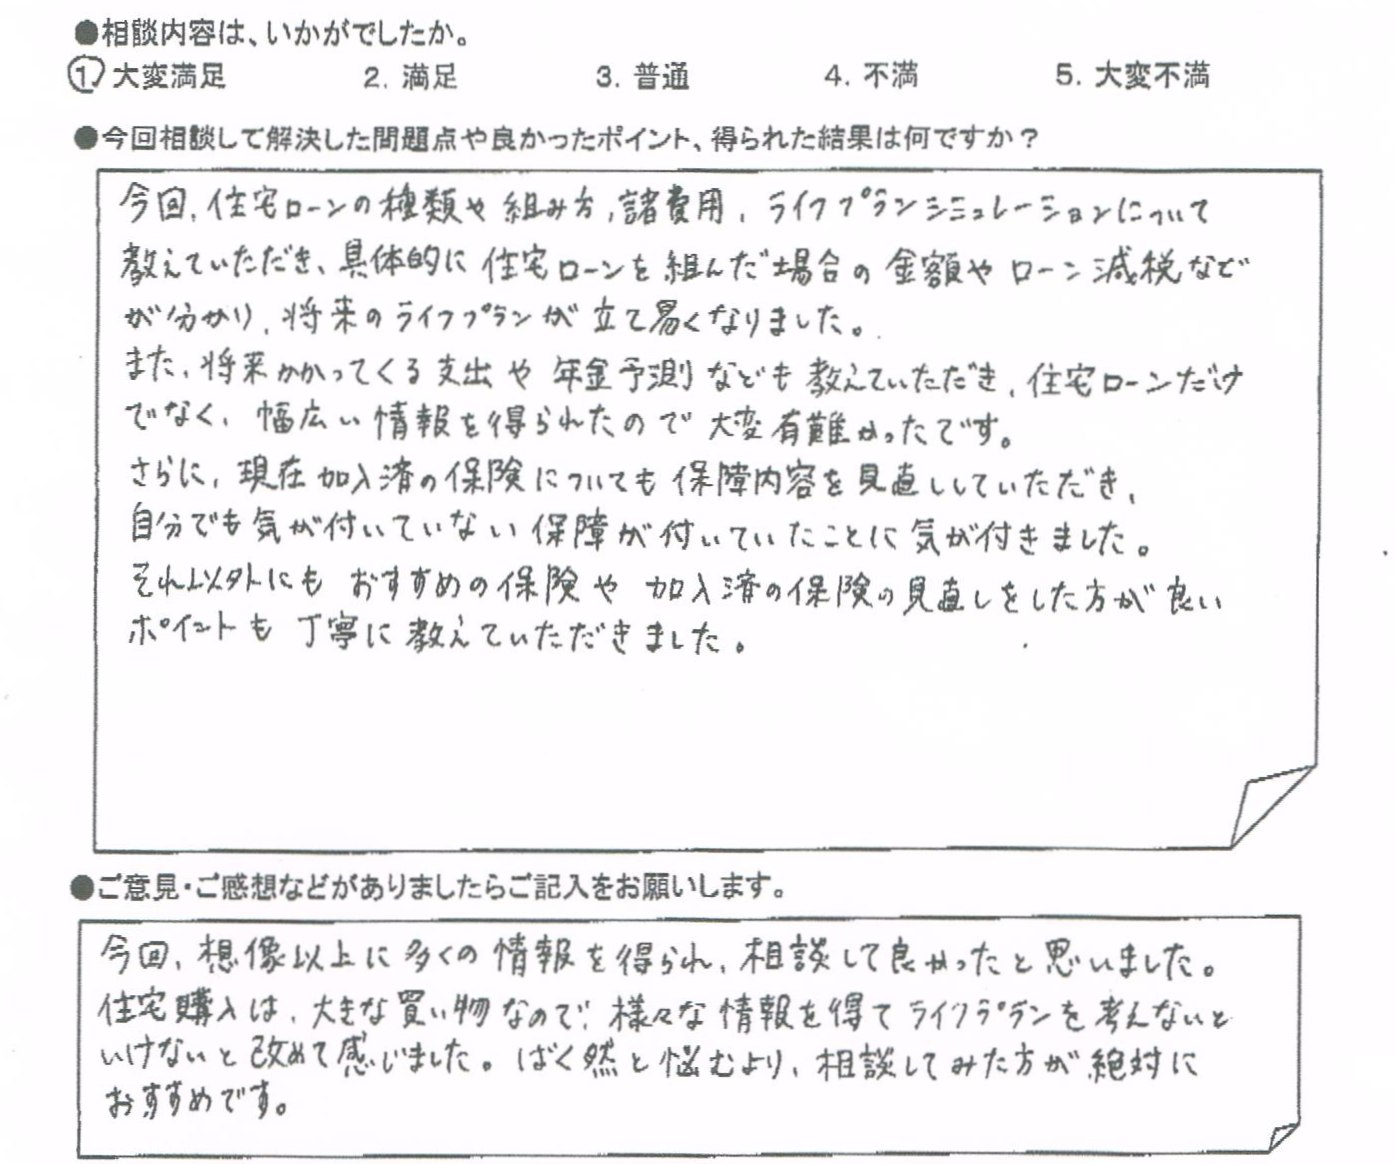 ●相談内容は、いかがでしたか。
1. 大変満足 2. 満足 3. 普通 4. 不満 5. 大変不満
●今回相談して解決した問題点や良かったポイント、得られた結果は何ですか？
今回、住宅ローンの種類や組み方、諸費用、ライフプランシミュレーションについて
教えていただき、具体的に住宅ローンを組んだ場合の金額やローン減税など
が分かり、将来のライフプランが立て易くなりました。
また、将来かかってくる支出や年金予測なども教えていただき、住宅ローンだけ
でなく、幅広い情報を得られたので大変有難かったです。
さらに、現在加入済の保険についても保障内容を見直ししていただき、
自分でも気が付いていない保障が付いていたことに気が付きました。
それ以外にもおすすめの保険や加入済の保険の見直しをした方が良い
ポイントも丁寧に教えていただきました。
●ご意見・ご感想などがありましたらご記入をお願いします。
今回、想像以上に多くの情報を得られ、相談して良かったと思いました。
住宅購入は、大きな買い物なので、様々な情報を得てライフプランを考えないと
いけないと改めて感じました。ばく然と悩むより、相談してみた方が絶対に
おすすめです。